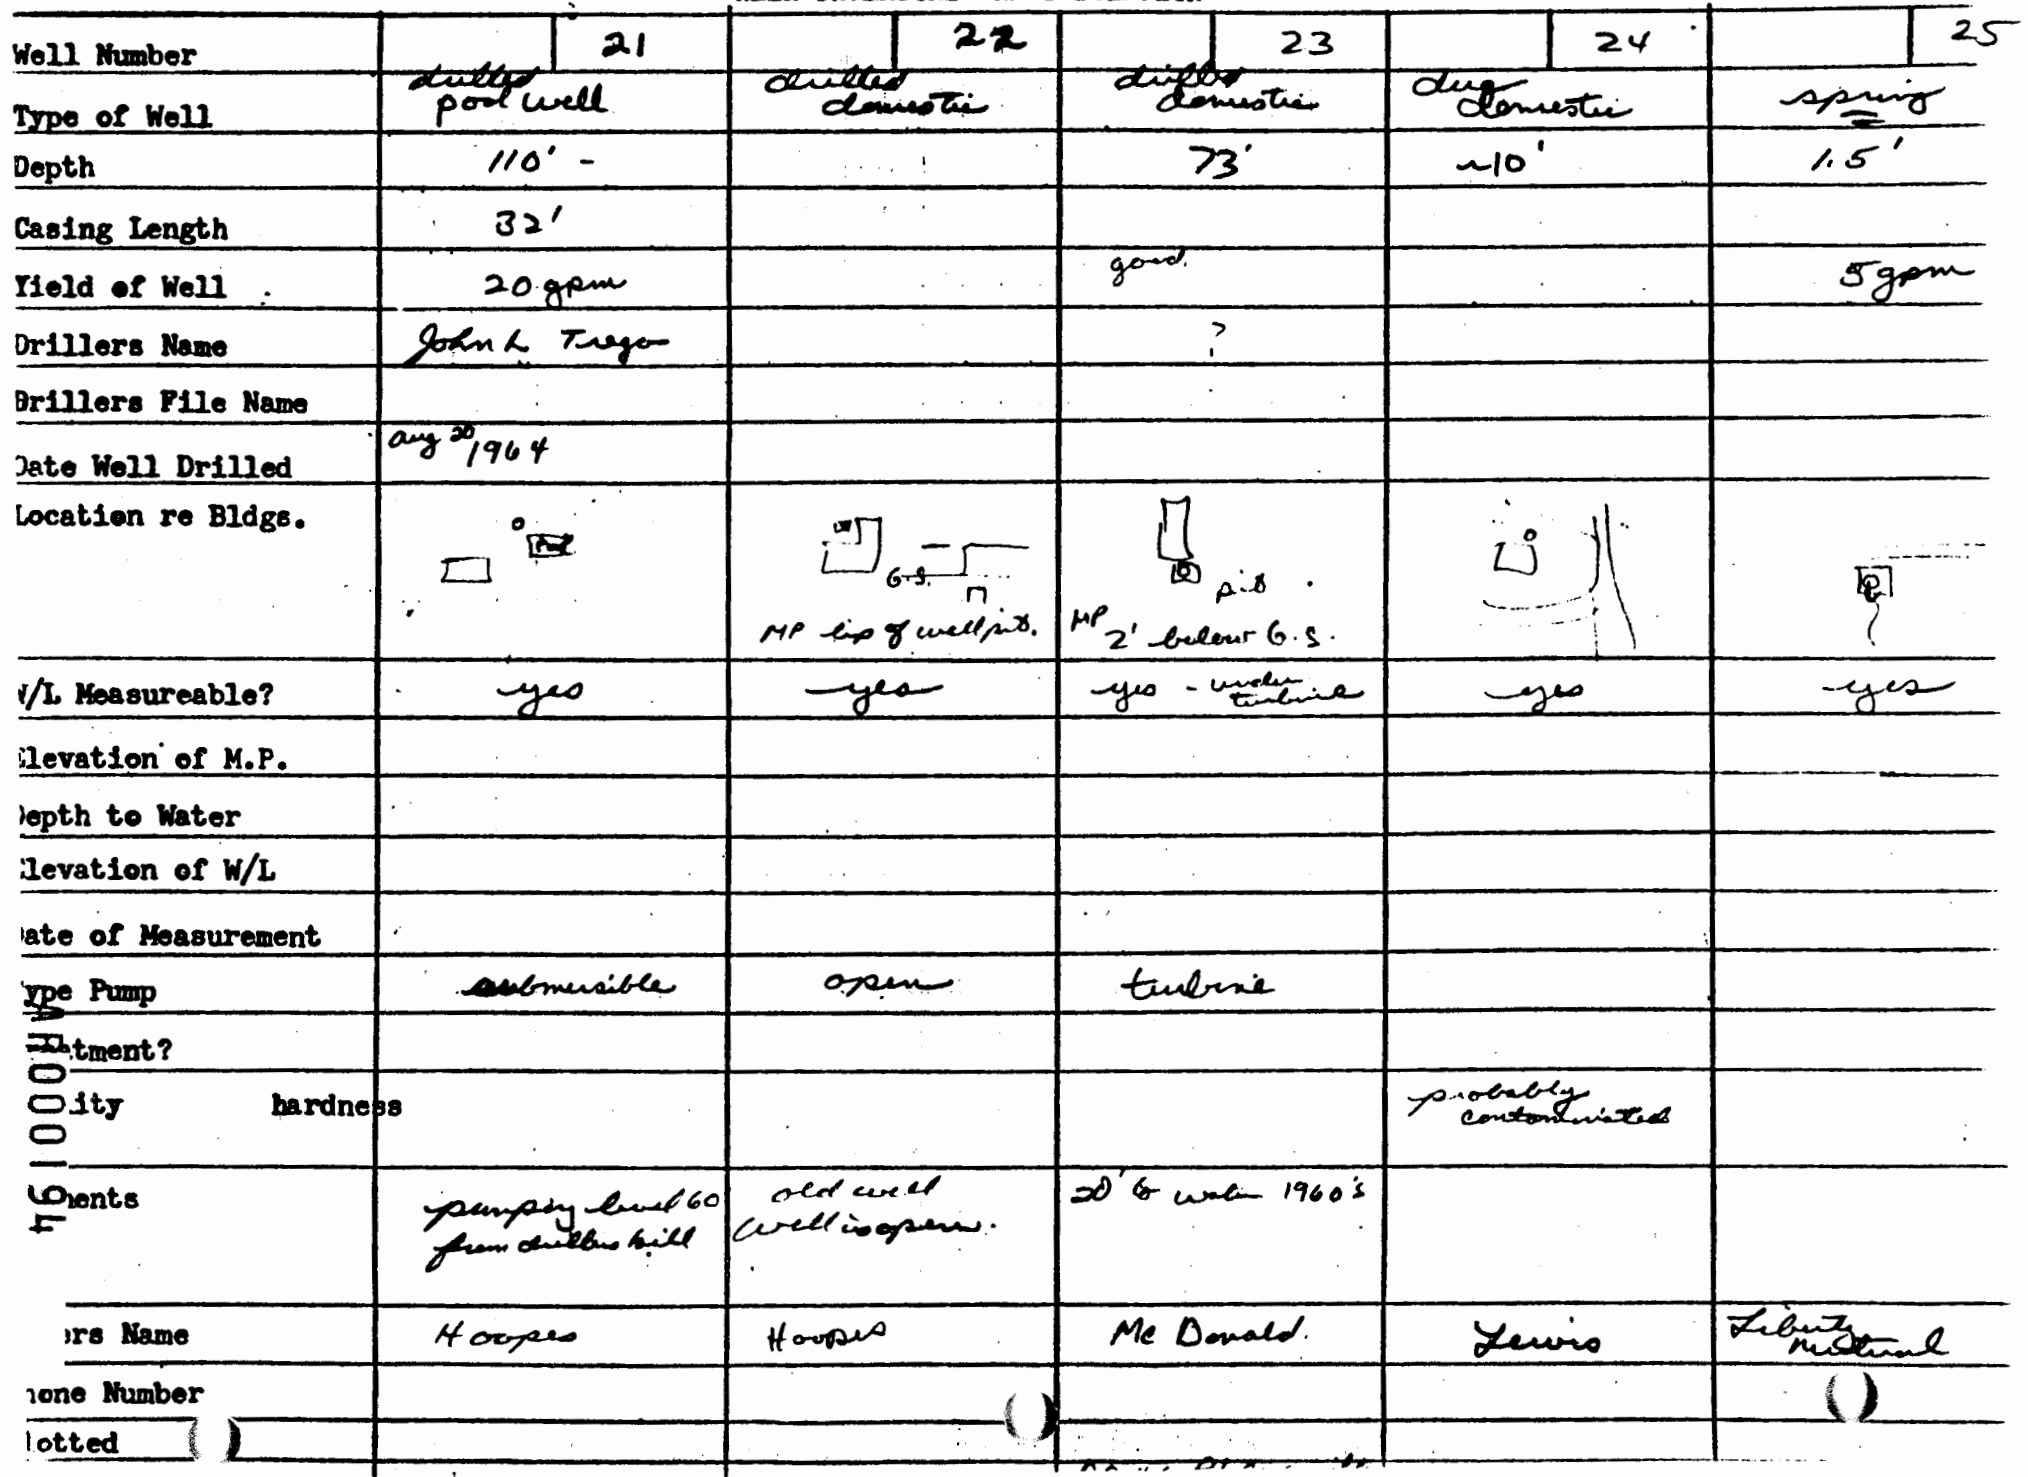 Well Number 21 22 23 24 25
drilled drilled drilled dug
Type of Well pool well domestic domestic domestic spring
Depth 110' - 73' ~10' 1.5'
Casing Length 32'
Yield of Well 20 gpm good. 5 gpm
Drillers Name John L Trego ?
Drillers File Name
Date Well Drilled Aug 20/1964
Location re Bldgs.
Pool
G.S. pit
MP lip of well pit. MP 2' below G.S.
W/L Measureable? yes yes yes - under turbine yes yes
levation of M.P.
epth to Water
levation of W/L
ate of Measurement
ype Pump submersible open turbine
tment?
ity hardness probably
contaminated
ments pumping level 60 old well 20' to water 1960's
from drillers bill well is open.
ers Name Hoopes Hoopes Mc Donald. Lewis Liberty
Mutual
hone Number
lotted